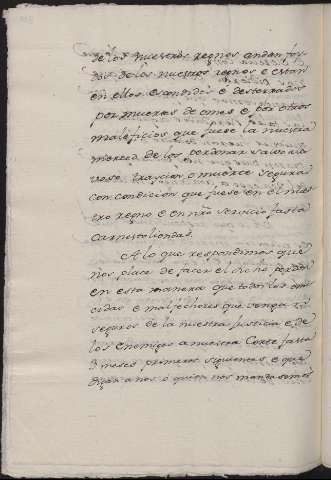 de los nuestros regnos andan fui
dos de los nuestros regnos e estan
en ellos escondidos e desterrados
por muertes de omes e por otros
maleficios que fuese la nuestra
merced de los perdonar salvo ale
vose traycion o muerte segura
con condicion que fuese en el nues
tro regno e en nro servicio fasta
Carnistoliendas.
A lo que respondimos que
nos place de facer el dicho perdon
en esta manera que todos los omi
cidas e malfechores que vengan
seguros de la nuestra Justicia e de
los enemigos a nuestra Corte fasta
3 meses primeros siguientes e que
digan a nos o quien nos mandasemos